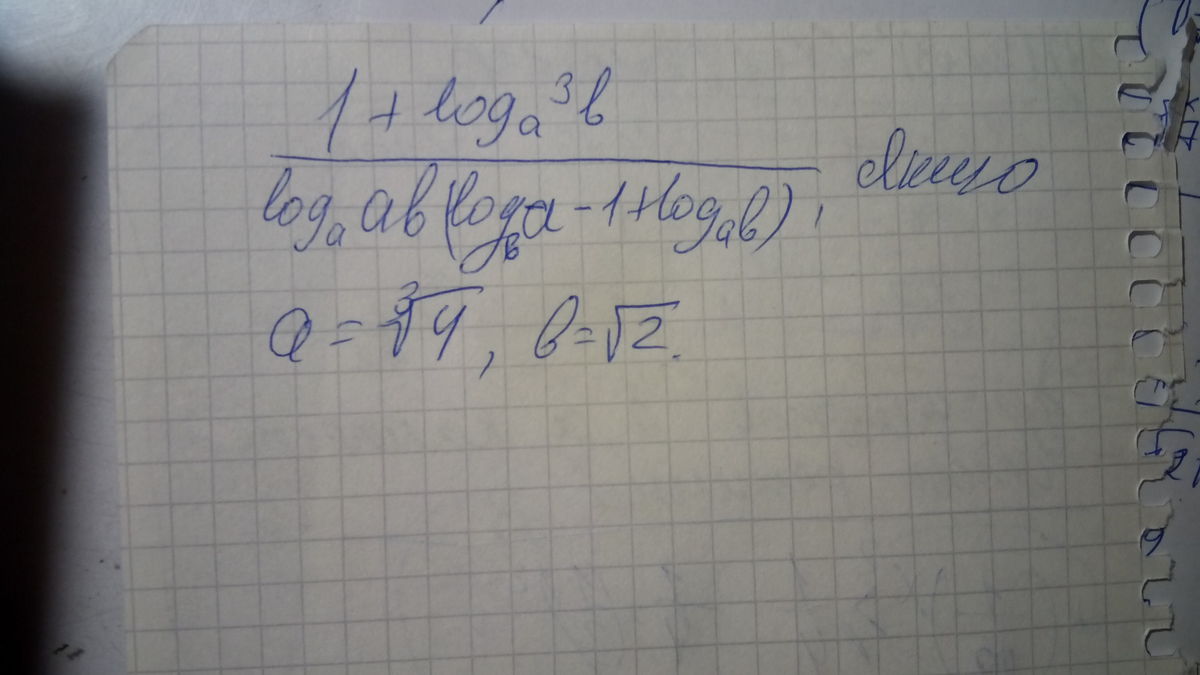 1 + logₐ³b
logₐ ab (log_b a - 1 + logₐb), якщо
a = ∛4, b = √2.